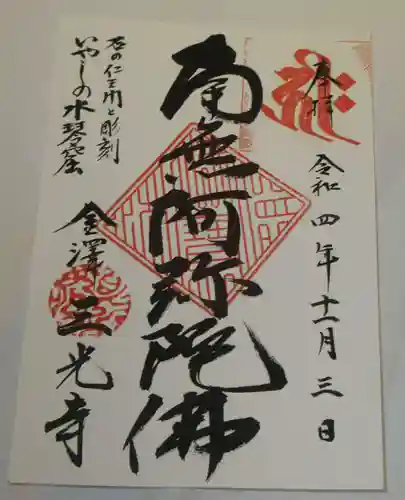 奉拝
令和四年十一月三日
南無阿弥陀佛
石の仁王門と彫刻
いやしの水琴窟
金澤 三光寺